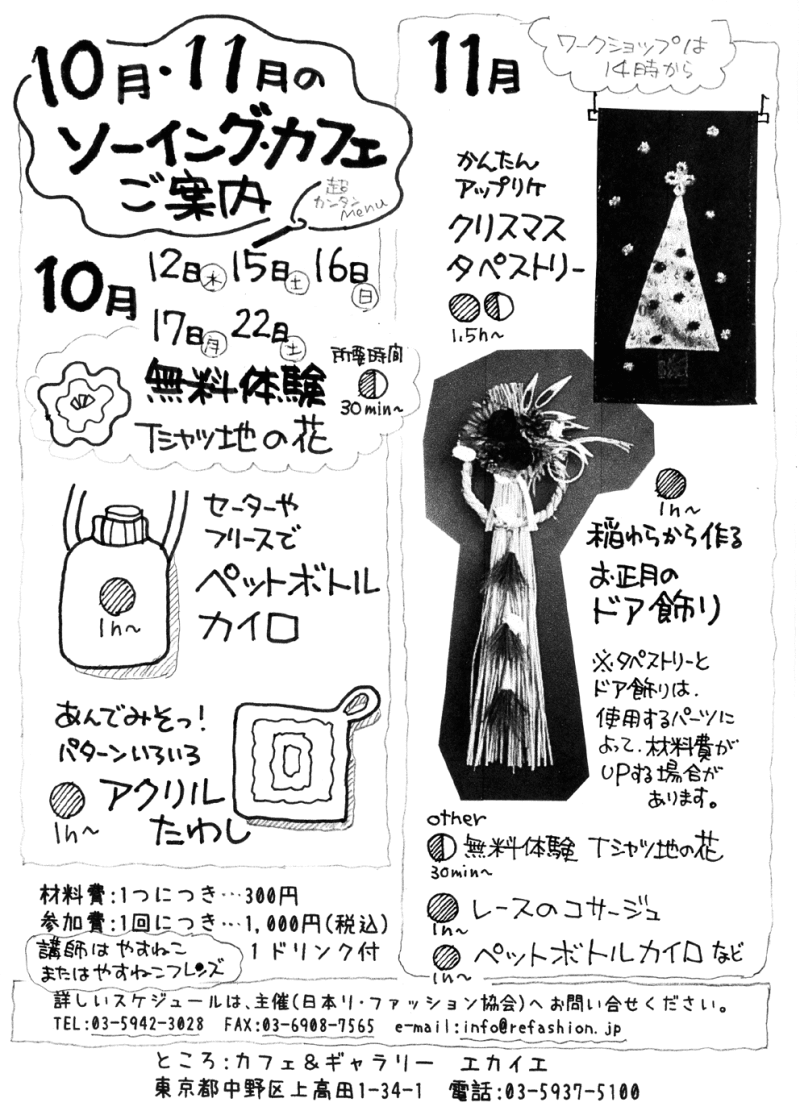 10月・11月の
ソーイング・カフェ
ご案内
超
カンタン
Menu
10月
12日木 15日土 16日日
17日月 22日土
無料体験
Tシャツ地の花
所要時間
30min~
セーターや
フリースで
ペットボトル
カイロ
1h~
あんでみそっ!
パターンいろいろ
アクリル
たわし
1h~
材料費:1つにつき…300円
参加費:1回につき…1,000円(税込)
1ドリンク付
講師はやすねこ
またはやすねこフレンズ
11月
ワークショップは
14時から
かんたん
アップリケ
クリスマス
タペストリー
1.5h~
1h~
稲わらから作る
お正月の
ドア飾り
※タペストリーと
ドア飾りは、
使用するパーツに
よって、材料費が
UPする場合が
あります。
other
無料体験 Tシャツ地の花
30min~
レースのコサージュ
1h~
ペットボトルカイロなど
1h~
詳しいスケジュールは、主催(日本リ・ファッション協会)へお問い合せください。
TEL:03-5942-3028 FAX:03-6908-7565 e-mail:info@refashion.jp
ところ:カフェ&ギャラリー エカイエ
東京都中野区上高田1-34-1 電話:03-5937-5100